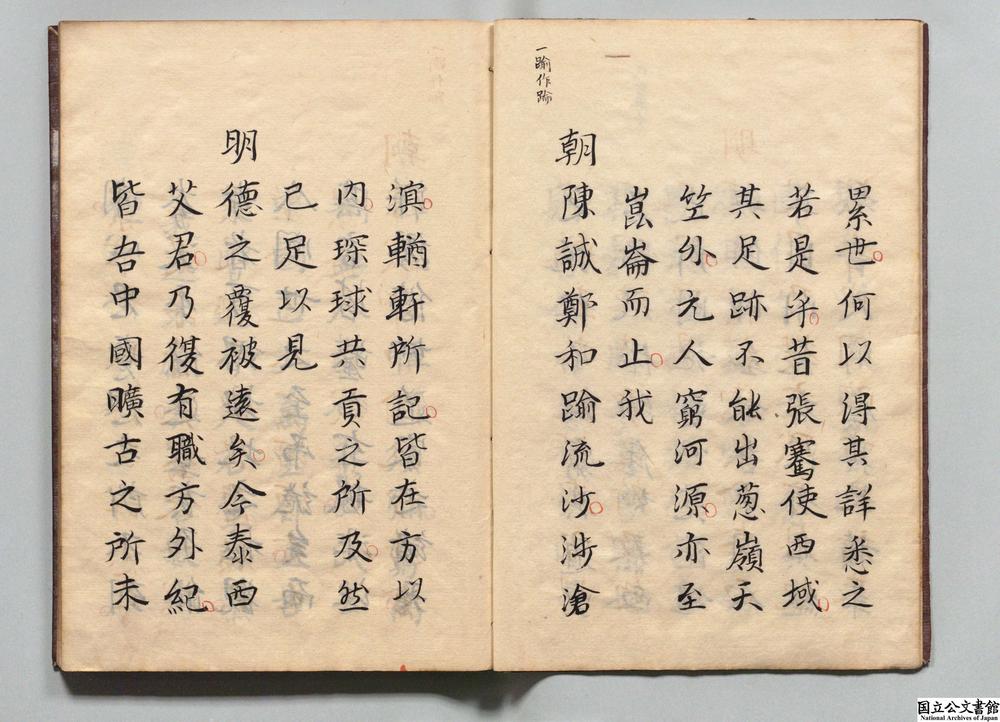 一踰作踚
累世何以得其詳悉之
若是乎昔張騫使西域
其足跡不能出葱嶺天
笠外元人窮河源亦至
崑崙而止我
朝陳誠鄭和踰流沙涉滄
溟輶軒所記皆在方以
内琛球共貢之所及然
已足以見
明德之覆被遠矣今泰西
艾君乃復有職方外紀
皆吾中國曠古之所未
国立公文書館
National Archives of Japan